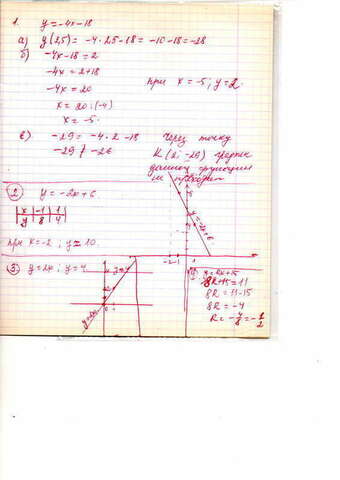 1. y = -4x - 18
а) y(2,5) = -4 · 2,5 - 18 = -10 - 18 = -28
б) -4x - 18 = 2
-4x = 2 + 18
-4x = 20
x = 20 : (-4)
x = -5.
при x = -5; y = 2.
в) -29 = -4 · 2 - 18
-29 ≠ -26
Через точку
K (2; -29) график
данной функции
не проходит
2 y = -2x + 6
x -1 1
y 8 4
при x = -2; y = 10.
y = -2x + 6
-2 -1 1
3) y = 2x; y = 4
y = 4
y = 2x
y = kx + 15
8k + 15 = 11
8k = 11 - 15
8k = -4
k = -4/8 = -1/2